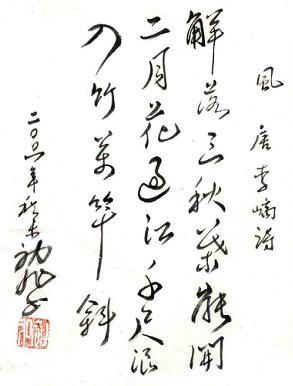 風 唐 李嶠詩
解落三秋葉能開
二月花過江千尺浪
入竹萬竿斜